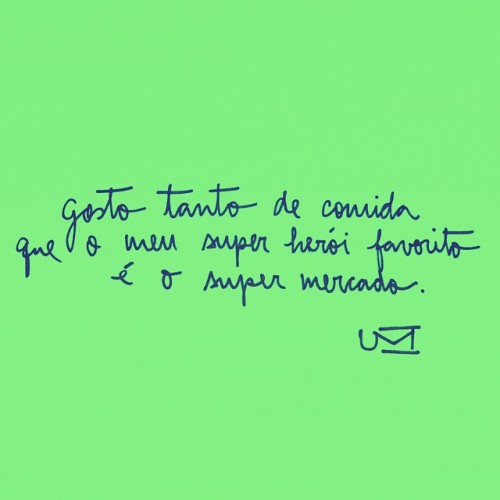 Gosto tanto de comida
que o meu super herói favorito
é o super mercado.
UM